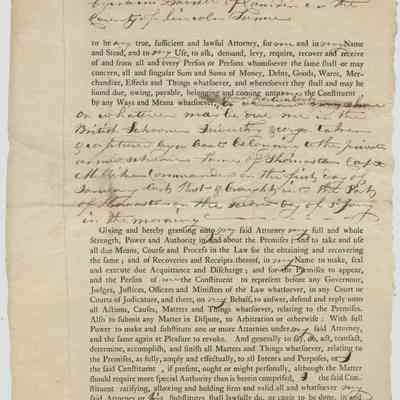 Ephraim Barrett of Camden in the
County of Lincoln
to be my true, sufficient and lawful Attorney, for me and in my Name
and Stead, and to my Use, to ask, demand, levy, require, recover and receive
of and from all and every Person or Persons whomsoever the same shall or may
concern, all and singular Sum and Sums of Money, Debts, Goods, Wares, Mer-
chandize, Effects and Things whatsoever, and wheresoever they shall and may
be found due, owing, payable, belonging and coming unto me the Constituent
by any Ways and Means whatsoever, to
or whatever may be due me in the
British Schooner George taken
& captured by a boat belonging to the private
armed schooner of Thomaston Capt
Commander on the first day of
January last Past & brought into the Port
of Thomaston on the second day of
in the morning
Giving and hereby granting unto my said Attorney my full and whole
Strength, Power and Authority in and about the Premises; and to take and use
all due Means, Course and Process in the Law for the obtaining and recovering
the same; and of Recoveries and Receipts thereof, in my Name to make, seal
and execute due Acquittance and Discharge; and for the Premises to appear,
and the Person of me the Constituent to represent before any Governor,
Judges, Justices, Officers and Ministers of the Law whatsoever, in any Court or
Courts of Judicature, and there, on my Behalf, to answer, defend and reply unto
all Actions, Causes, Matters and Things whatsoever, relating to the Premises.
Also to submit any Matter in Dispute, to Arbitration or otherwise: With full
Power to make and substitute one or more Attornies under my said Attorney,
and the same again at Pleasure to revoke. And generally to say, do, act, transact,
determine, accomplish, and finish all Matters and Things whatsoever, relating to
the Premises, as fully, amply and effectually, to all Intents and Purposes, as I
the said Constituent, if present, ought or might personally, although the Matter
should require more special Authority than is herein comprised, I the said Con-
stituent ratifying, allowing and holding firm and valid all and whatsoever my
said Attorney or his Substitutes shall lawfully do, or cause to be done, in and